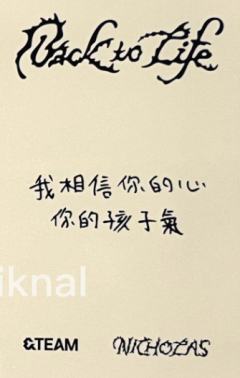 Back to Life
我相信你的心
你的孩子氣
iknal
&TEAM NICHOLAS